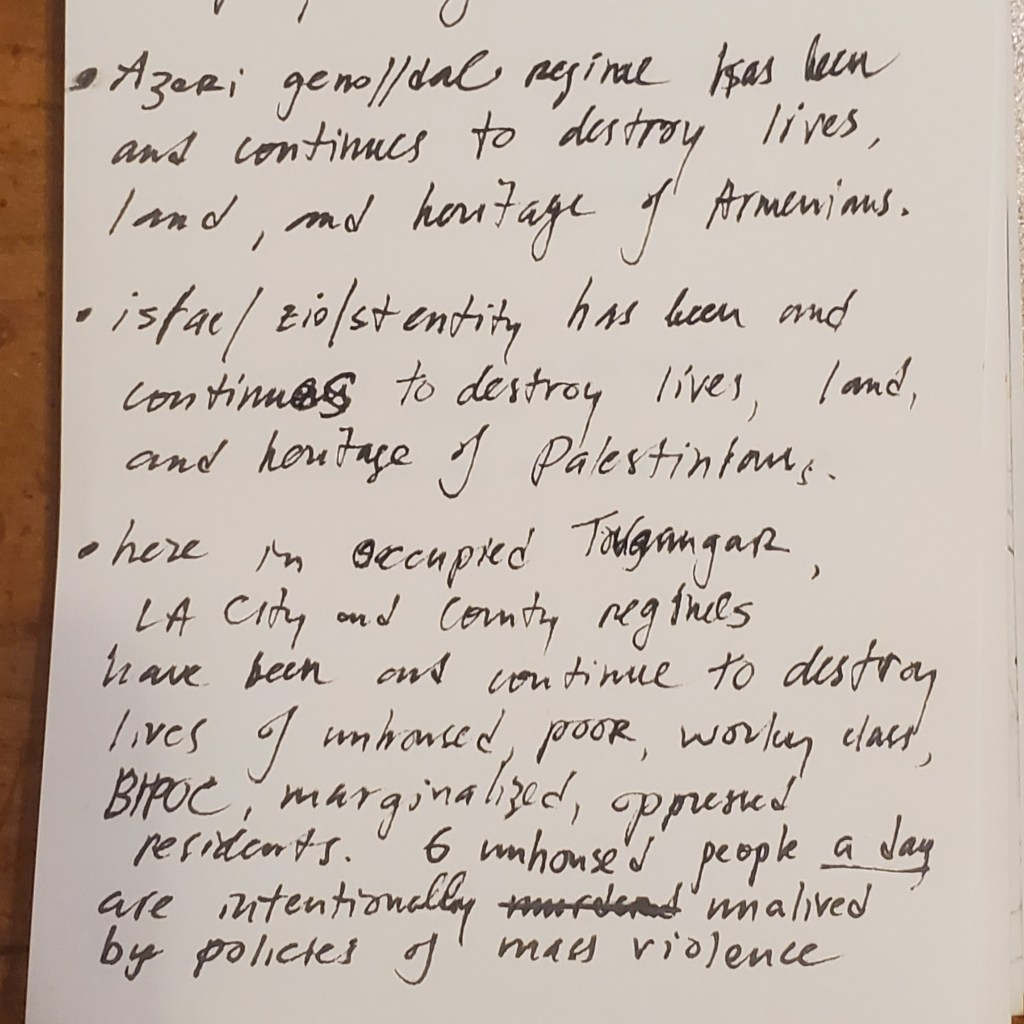 • Azeri geno//dal regime has been
and continues to destroy lives,
land, and heritage of Armenians.
• israe/ zio/st entity has been and
continues to destroy lives, land,
and heritage of Palestinians.
• here in occupied
LA City and County regimes
have been and continue to destroy
lives of unhoused, poor, working class,
BIPOC, marginalized, oppressed
residents. 6 unhoused people a day
are intentionally murdered unalived
by policies of mass violence